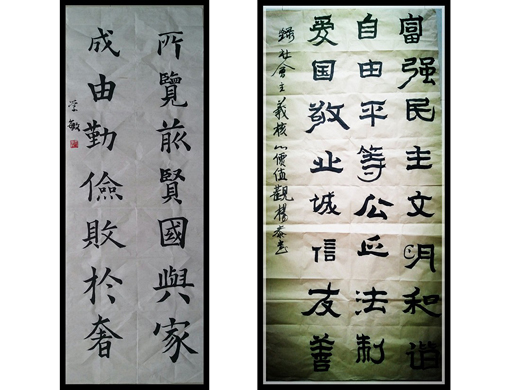 所覽前賢國與家
成由勤儉敗於奢
敏
富强民主文明和谐
自由平等公正法制
爱国敬业誠信友善
錄社会主義核心價值觀楊